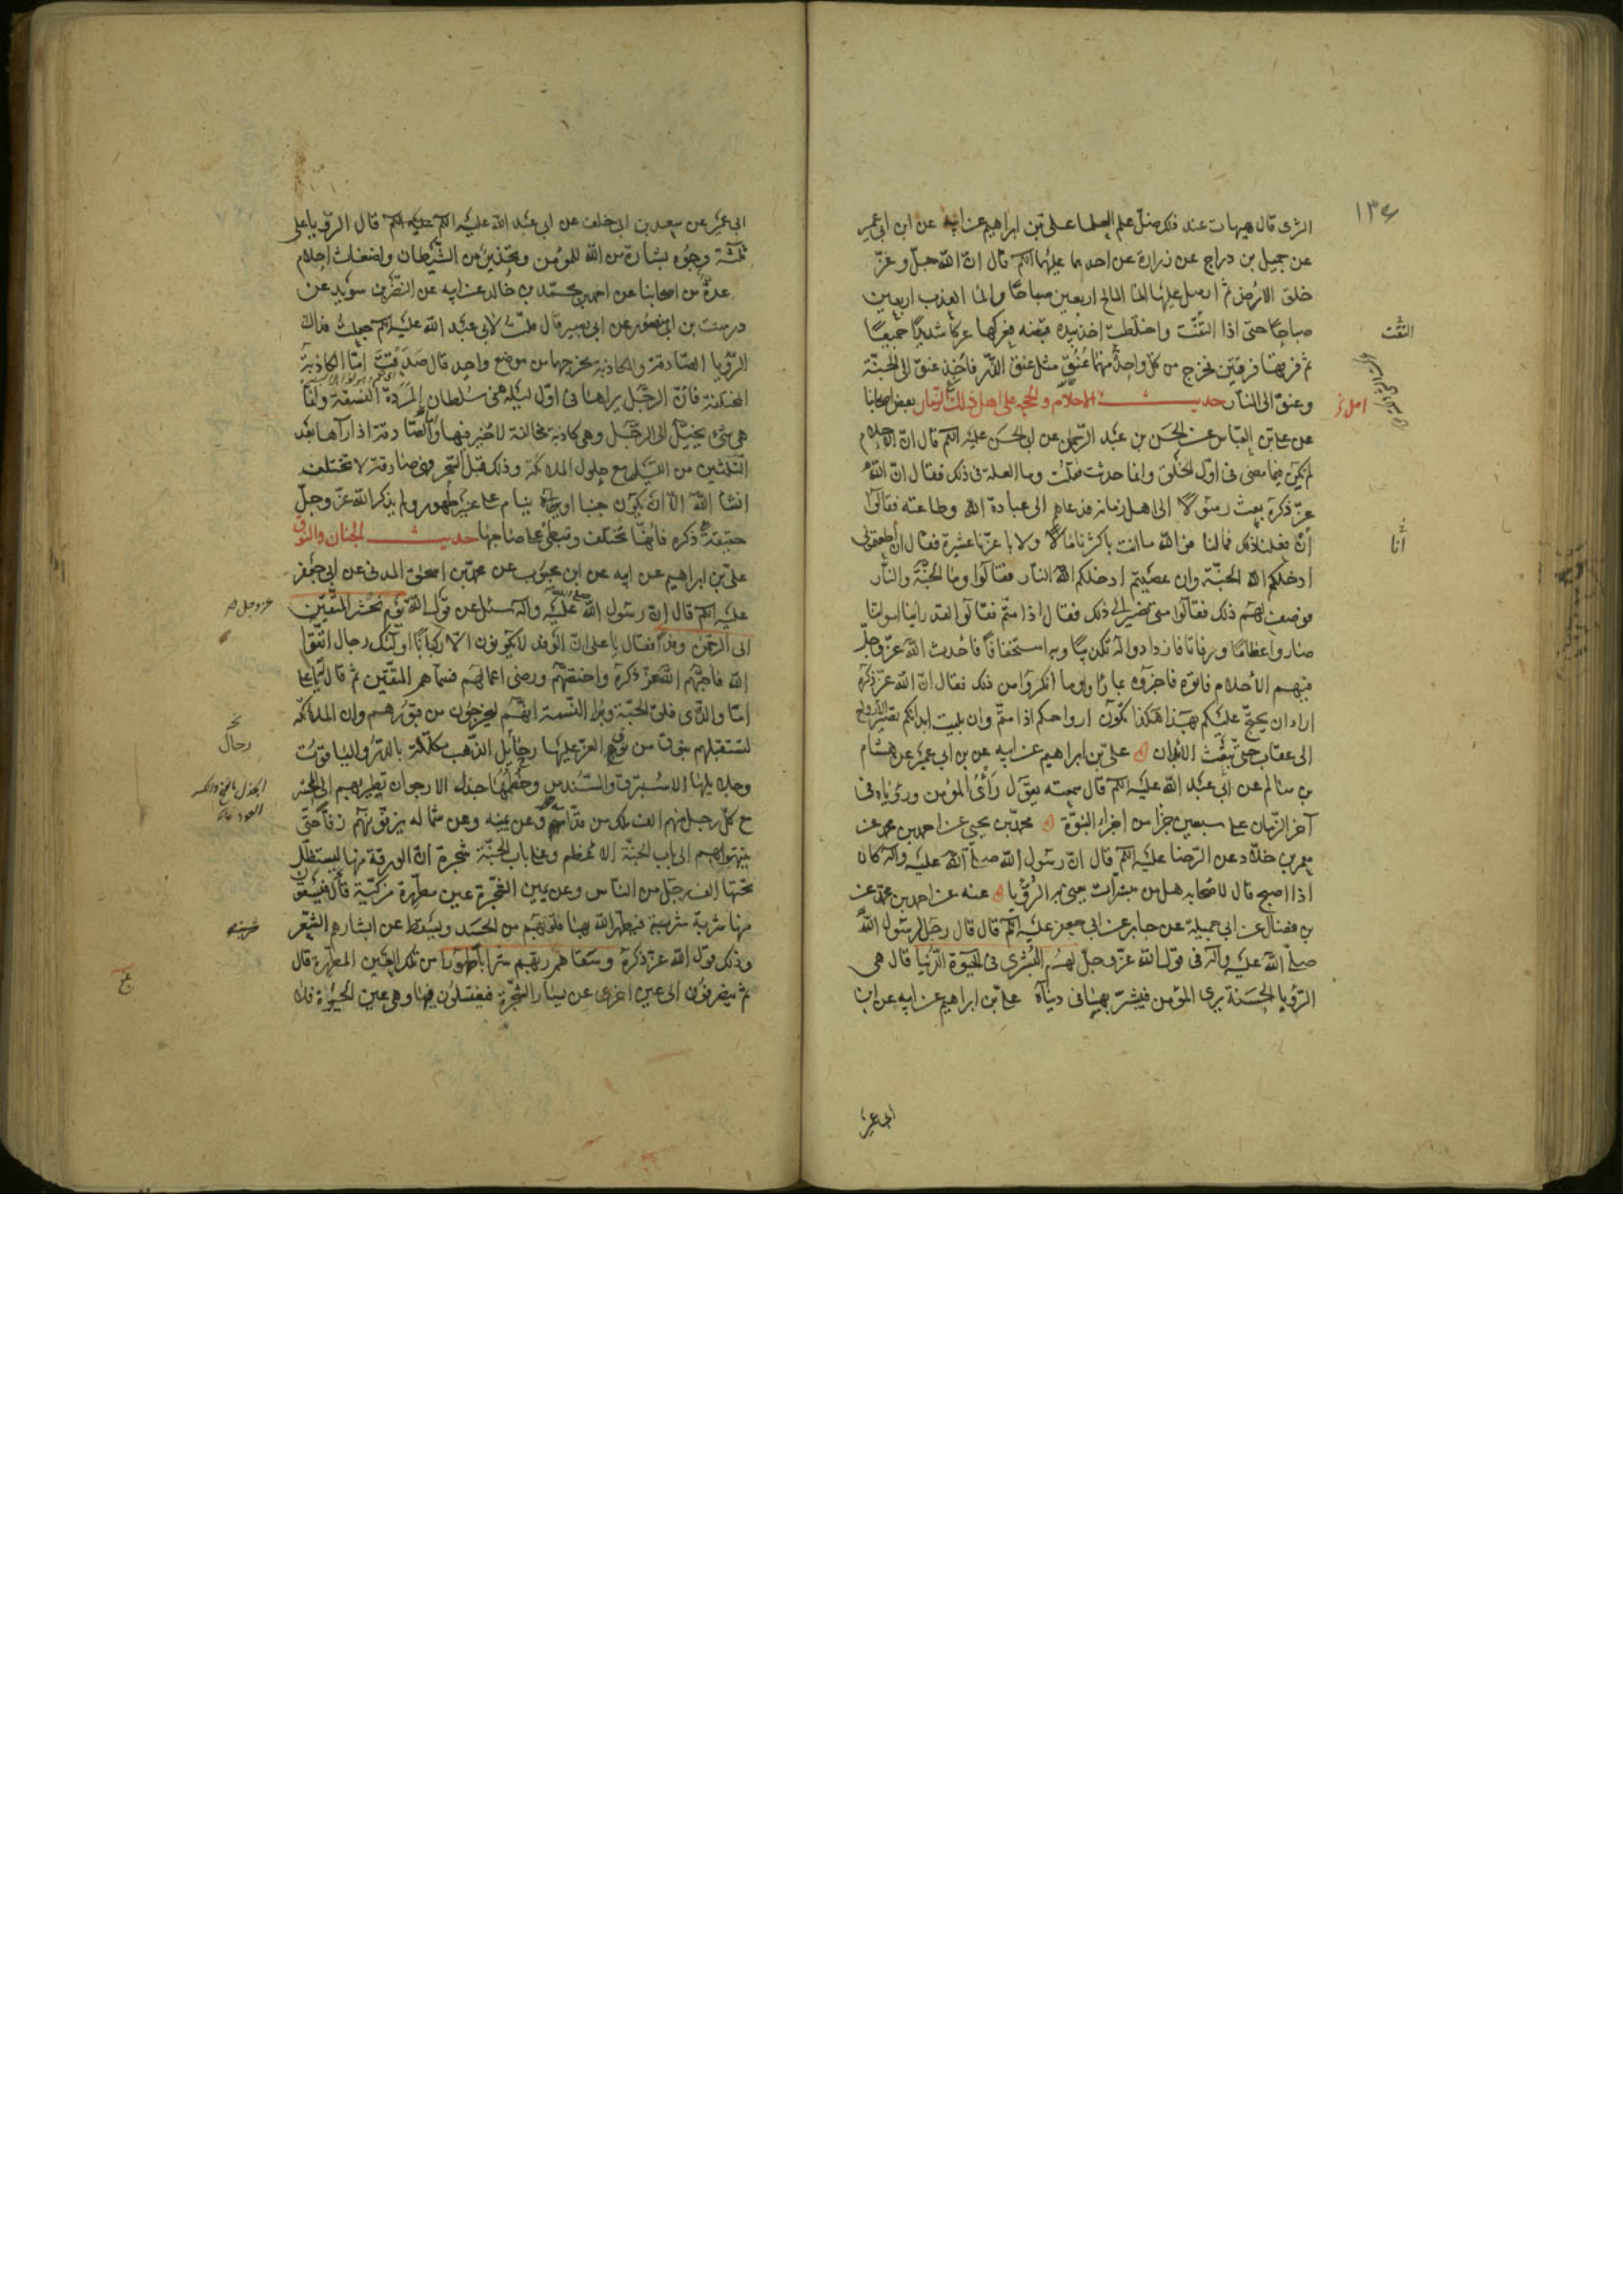 ١٣٤
الثرى قال هيهات عند ذلك ضل علم العلماء علي بن ابراهيم عن ابيه عن ابن ابي عمير
عن جميل بن دراج عن زرارة عن احدهما عليهما السلم قال ان الله جل وعز
خلق الارض ثم ارسل عليها الماء المالح اربعين صباحا والماء العذب اربعين
صباحا حتى اذا التقت واختلطت اخذ بيده قبضه فعركها عركا شديدا جميعا
التقت
ثم فرقها فرقتين فخرج من كل واحدة منهما عنق مثل عنق الذر فاخذ عنق الى الجنة
وعنق الى النار حديث الاحلام والحجه على اهل ذلك الزمان بعض اصحابنا
عن علي بن العباس عن الحسن بن عبد الرحمن عن ابي الحسن عليه السلم قال ان الاحلام
لم يكن فيما مضى في اول الخلق وانما حدثت فقلت وما العلة في ذلك فقال ان الله
عز ذكره بعث رسولا الى اهل زمانه فدعاهم الى عبادة الله وطاعته فقالوا
ان فعلنا ذلك فما لنا فو الله ما انت باكثرنا مالا ولا باعزنا عشيرة فقال ان اطعتموني
ادخلكم الله الجنة وان عصيتم ادخلكم الله النار فقالوا وما الجنة والنار
فوصف لهم ذلك فقالوا متى نصير الى ذلك فقال اذا متم فقالوا لقد راينا امواتنا
صاروا عظاما ورفاتا فازدادوا له تكذيبا وبه استخفافا فاحدث الله عز وجل
فيهم الاحلام فاتوه فاخبروه بما راوا وما انكروا من ذلك فقال ان الله عز ذكره
اراد ان يحتج عليكم بهذا هكذا تكون ارواحكم اذا متم وان بليت ابدانكم تصير الارواح
الى عقاب حتى تبعث الابدان علي بن ابراهيم عن ابيه عن بن ابي عمير عن هشام
بن سالم عن ابي عبد الله عليه السلم قال سمعته يقول رأى المؤمن ورؤياه في
آخر الزمان على سبعين جزا من اجزاء النبوة محمد بن يحيى عن احمد بن محمد عن
معمر بن خلاد عن الرضا عليه السلم قال ان رسول الله صلى الله عليه واله كان
اذا اصبح قال لاصحابه هل من مبشرات يعني به الرؤيا عنه عن احمد بن محمد عن
بن فضال عن ابي جميلة عن جابر عن ابي جعفر عليه السلم قال قال رجل لرسول الله
صلى الله عليه واله في قول الله عز وجل لهم البشرى في الحيوة الدنيا قال هي
الرؤيا الحسنة يرى المؤمن فيبشر بها في دنياه علي بن ابراهيم عن ابيه عن ابن
ابي عمير
ابي عمير عن سعد بن ابي خلف عن ابي عبد الله عليه السلم قال الرؤيا على
ثلثة وجوه بشارة من الله للمؤمن وتحذير من الشيطان واضغاث احلام
عدة من اصحابنا عن احمد بن محمد بن خالد عن ابيه عن النضر بن سويد عن
درست بن ابي منصور عن ابي بصير قال قلت لابي عبد الله عليه السلم جعلت فداك
الرؤيا الصادقة والكاذبة مخرجهما من موضع واحد قال صدقت اما الكاذبة
المختلفة فان الرجل يراها في اول ليله في سلطان المردة الفسقة وانما
هي شئ يخيل الى الرجل وهي كاذبة مخالفة لا خير فيها واما الصادقة اذا رآها بعد
الثلثين من الليل مع حلول الملائكة وذلك قبل السحر وهي صادقة لا تختلف
انشاء الله الا ان يكون جنبا او ينام على غير طهور ولم يذكر الله عز وجل
حقيقة ذكره فانها تختلف وتبطئ على صاحبها حديث الجنان والنوق
علي بن ابراهيم عن ابيه عن ابن محبوب عن محمد بن اسحق المدني عن ابي جعفر
عليه السلم قال ان رسول الله صلى الله عليه واله سئل عن قول الله يوم نحشر المتقين
عز وجل
الى الرحمن وفدا فقال يا علي ان الوفد لا يكونون الا ركبانا اولئك رجال اتقوا
الله فاحبهم الله عز ذكره واختصهم ورضي اعمالهم فسماهم المتقين ثم قال له يا علي
اما والذي فلق الحبة وبرا النسمة انهم ليخرجون من قبورهم وان الملائكة
لتستقبلهم بنوق من نوق العز عليها رحائل الذهب مكللة بالدر والياقوت
رحال
وجلايلها الاستبرق والسندس وخطمها جدل الارجوان تطير بهم الى المحشر
مع كل رجل منهم الف ملك من قدامه وعن يمينه وعن شماله يزفونهم زفا حتى
ينتهوا بهم الى باب الجنة الاعظم وعلى باب الجنة شجرة ان الورقة منها ليستظل
تحتها الف رجل من الناس وعن يمين الشجرة عين مطهرة مزكية قال فيسقون
منها شربة شربة فيطهر الله بها قلوبهم من الحسد ويسقط عن ابشارهم الشعر
وذلك قول الله عز ذكره وسقاهم ربهم شرابا طهورا من تلك العين المطهرة قال
ثم يصرفون الى عين اخرى عن يسار الشجرة فيغتسلون فيها وهي عين الحيوة فلا